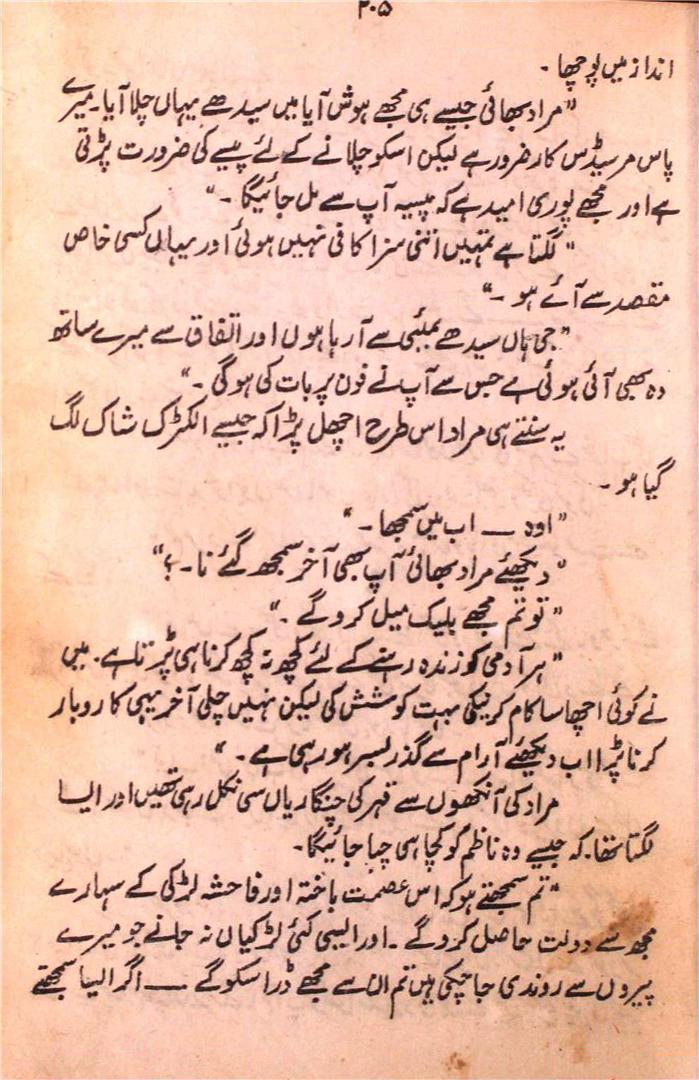 ۲۰۵
انداز میں پوچھا۔
”مراد بھائی جیسے ہی مجھے ہوش آیا میں سیدھے یہاں چلا آیا۔ میرے
پاس مرسیڈس کار ضرور ہے لیکن اسکو چلانے کے لئے پیسے کی ضرورت پڑتی
ہے اور مجھے پوری امید ہے کہ پیسہ آپ سے مل جائیگا۔“
”لگتا ہے تمہیں اتنی سزا کافی نہیں ہوئی اور یہاں کسی خاص
مقصد سے آئے ہو۔“
”جی ہاں سیدھے بمبئی سے آرہا ہوں اور اتفاق سے میرے ساتھ
وہ بھی آئی ہوئی ہے جس سے آپ نے فون پر بات کی ہوگی۔“
یہ سنتے ہی مراد اس طرح اچھل پڑا کہ جیسے الکٹرک شاک لگ
گیا ہو۔
”اوہ — اب میں سمجھا۔“
”دیکھئے مراد بھائی آپ بھی آخر سمجھ گئے نا۔؟“
”تو تم مجھے بلیک میل کروگے۔“
”ہر آدمی کو زندہ رہنے کے لئے کچھ نہ کچھ کرنا ہی پڑتا ہے۔ میں
نے کوئی اچھا سا کام کرنیکی بہت کوشش کی لیکن نہیں چلی آخر یہی کاروبار
کرنا پڑا اب دیکھئے آرام سے گذر بسر ہو رہی ہے۔“
مراد کی آنکھوں سے قہر کی چنگاریاں سی نکل رہی تھیں اور ایسا
لگتا تھا۔ کہ جیسے وہ ناظم کو کچا ہی چبا جائیگا۔
”تم سمجھتے ہو کہ اس عصمت باختہ اور فاحشہ لڑکی کے سہارے
مجھ سے دولت حاصل کروگے۔ اور ایسی کئی لڑکیاں نہ جانے جو میرے
پیروں سے روندی جاچکی ہیں تم ان سے مجھے ڈرا سکوگے — اگر ایسا سمجھتے